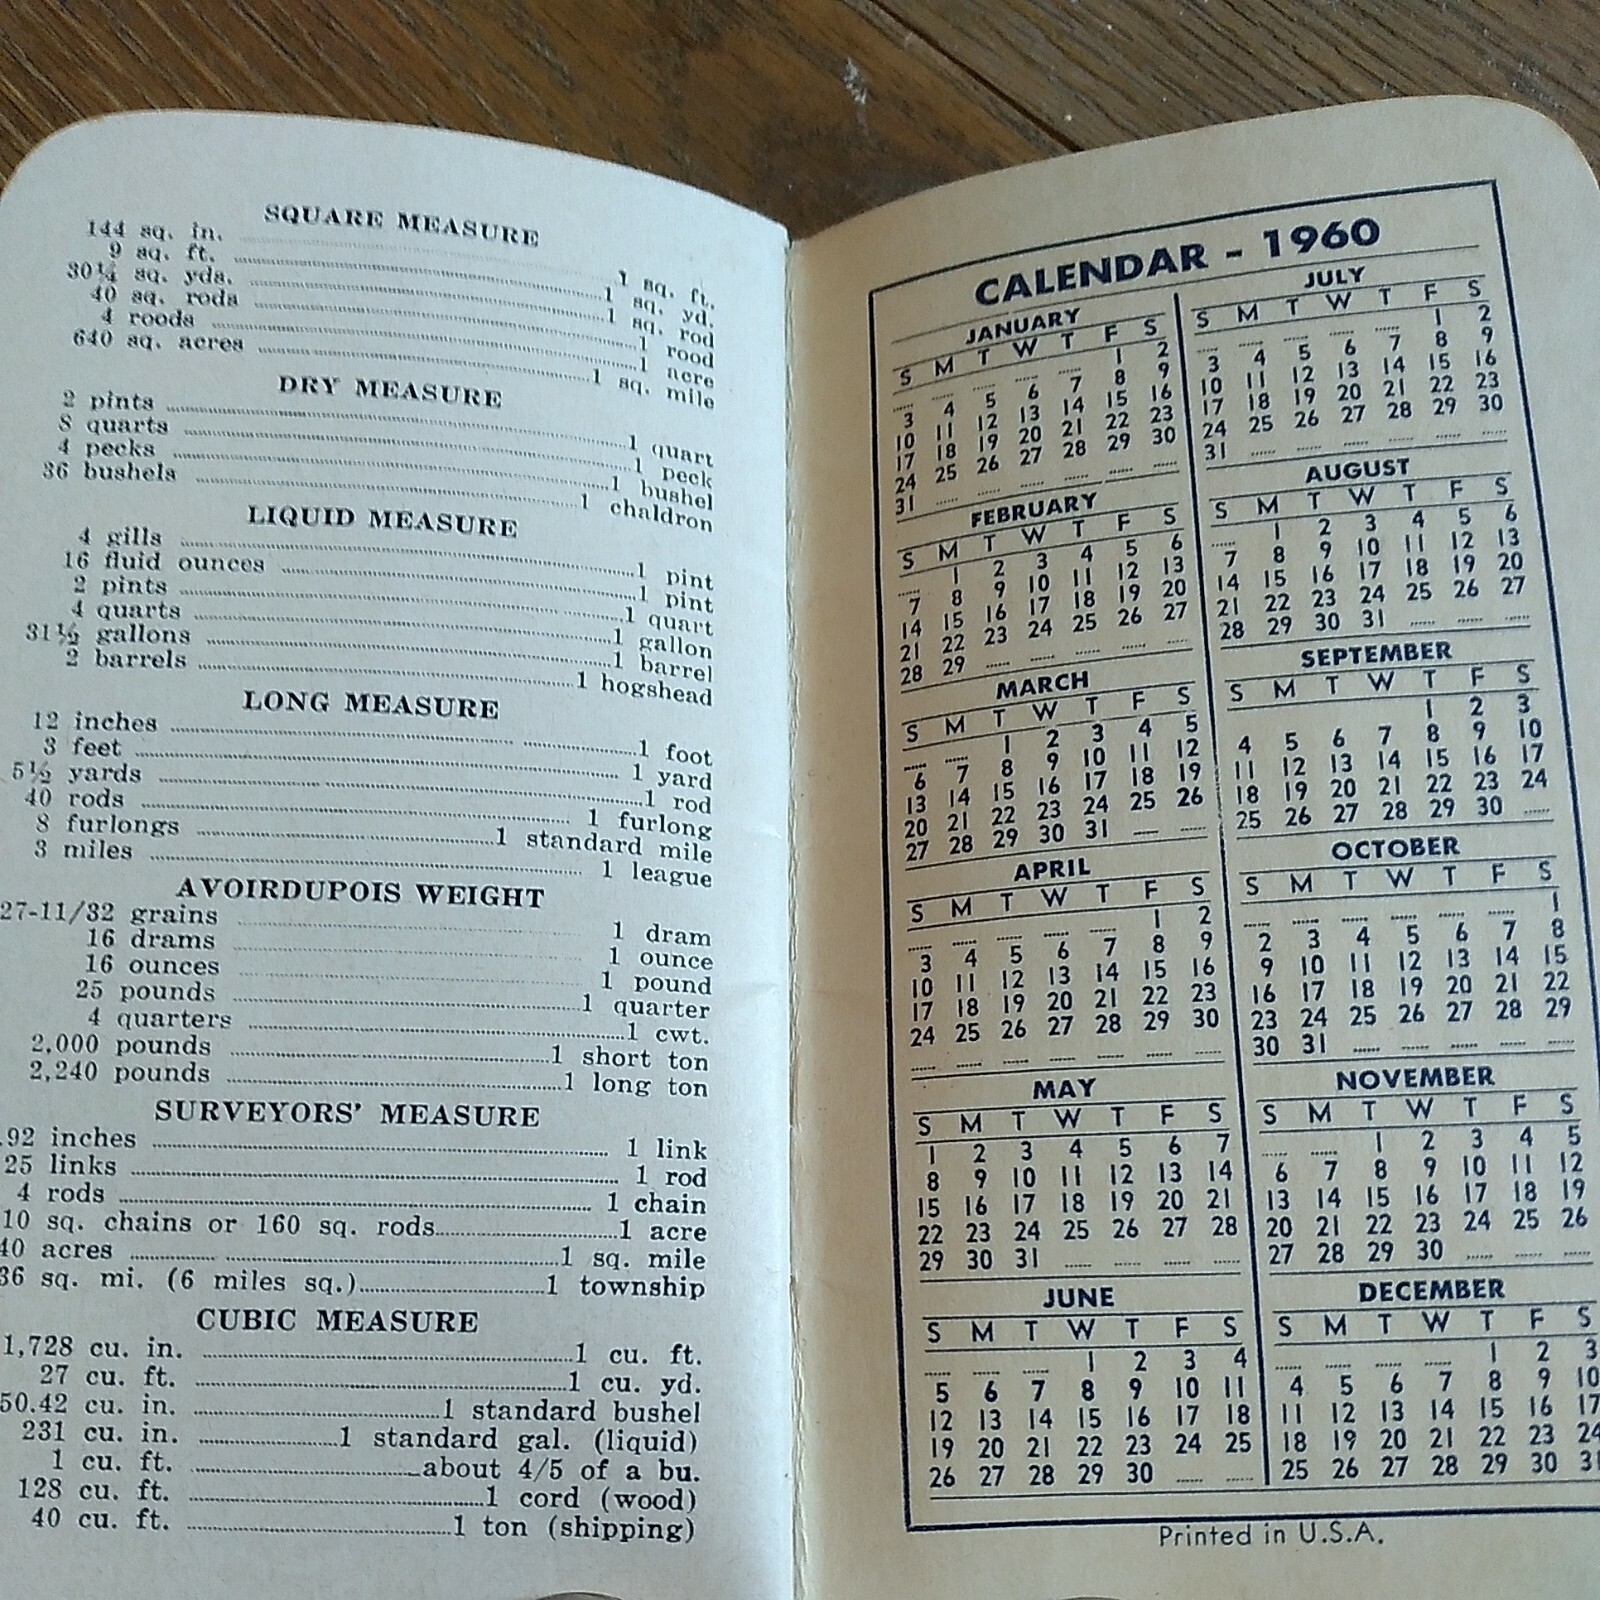 SQUARE MEASURE
144 sq. in. 1 sq. ft.
9 sq. ft. 1 sq. yd.
30¼ sq. yds. 1 sq. rod
40 sq. rods 1 rood
4 roods 1 acre
640 sq. acres 1 sq. mile
DRY MEASURE
2 pints 1 quart
8 quarts 1 peck
4 pecks 1 bushel
36 bushels 1 chaldron
LIQUID MEASURE
4 gills 1 pint
16 fluid ounces 1 pint
2 pints 1 quart
4 quarts 1 gallon
31½ gallons 1 barrel
2 barrels 1 hogshead
LONG MEASURE
12 inches 1 foot
3 feet 1 yard
5½ yards 1 rod
40 rods 1 furlong
8 furlongs 1 standard mile
3 miles 1 league
AVOIRDUPOIS WEIGHT
27-11/32 grains 1 dram
16 drams 1 ounce
16 ounces 1 pound
25 pounds 1 quarter
4 quarters 1 cwt.
2,000 pounds 1 short ton
2,240 pounds 1 long ton
SURVEYORS' MEASURE
.92 inches 1 link
25 links 1 rod
4 rods 1 chain
10 sq. chains or 160 sq. rods 1 acre
40 acres 1 sq. mile
36 sq. mi. (6 miles sq.) 1 township
CUBIC MEASURE
1,728 cu. in. 1 cu. ft.
27 cu. ft. 1 cu. yd.
50.42 cu. in. 1 standard bushel
231 cu. in. 1 standard gal. (liquid)
1 cu. ft. about 4/5 of a bu.
128 cu. ft. 1 cord (wood)
40 cu. ft. 1 ton (shipping)
CALENDAR - 1960
JANUARY
S M T W T F S
1 2
3 4 5 6 7 8 9
10 11 12 13 14 15 16
17 18 19 20 21 22 23
24 25 26 27 28 29 30
31
FEBRUARY
S M T W T F S
1 2 3 4 5 6
7 8 9 10 11 12 13
14 15 16 17 18 19 20
21 22 23 24 25 26 27
28 29
MARCH
S M T W T F S
1 2 3 4 5
6 7 8 9 10 11 12
13 14 15 16 17 18 19
20 21 22 23 24 25 26
27 28 29 30 31
APRIL
S M T W T F S
1 2
3 4 5 6 7 8 9
10 11 12 13 14 15 16
17 18 19 20 21 22 23
24 25 26 27 28 29 30
MAY
S M T W T F S
1 2 3 4 5 6 7
8 9 10 11 12 13 14
15 16 17 18 19 20 21
22 23 24 25 26 27 28
29 30 31
JUNE
S M T W T F S
1 2 3 4
5 6 7 8 9 10 11
12 13 14 15 16 17 18
19 20 21 22 23 24 25
26 27 28 29 30
JULY
S M T W T F S
1 2
3 4 5 6 7 8 9
10 11 12 13 14 15 16
17 18 19 20 21 22 23
24 25 26 27 28 29 30
31
AUGUST
S M T W T F S
1 2 3 4 5 6
7 8 9 10 11 12 13
14 15 16 17 18 19 20
21 22 23 24 25 26 27
28 29 30 31
SEPTEMBER
S M T W T F S
1 2 3
4 5 6 7 8 9 10
11 12 13 14 15 16 17
18 19 20 21 22 23 24
25 26 27 28 29 30
OCTOBER
S M T W T F S
1
2 3 4 5 6 7 8
9 10 11 12 13 14 15
16 17 18 19 20 21 22
23 24 25 26 27 28 29
30 31
NOVEMBER
S M T W T F S
1 2 3 4 5
6 7 8 9 10 11 12
13 14 15 16 17 18 19
20 21 22 23 24 25 26
27 28 29 30
DECEMBER
S M T W T F S
1 2 3
4 5 6 7 8 9 10
11 12 13 14 15 16 17
18 19 20 21 22 23 24
25 26 27 28 29 30 31
Printed in U.S.A.